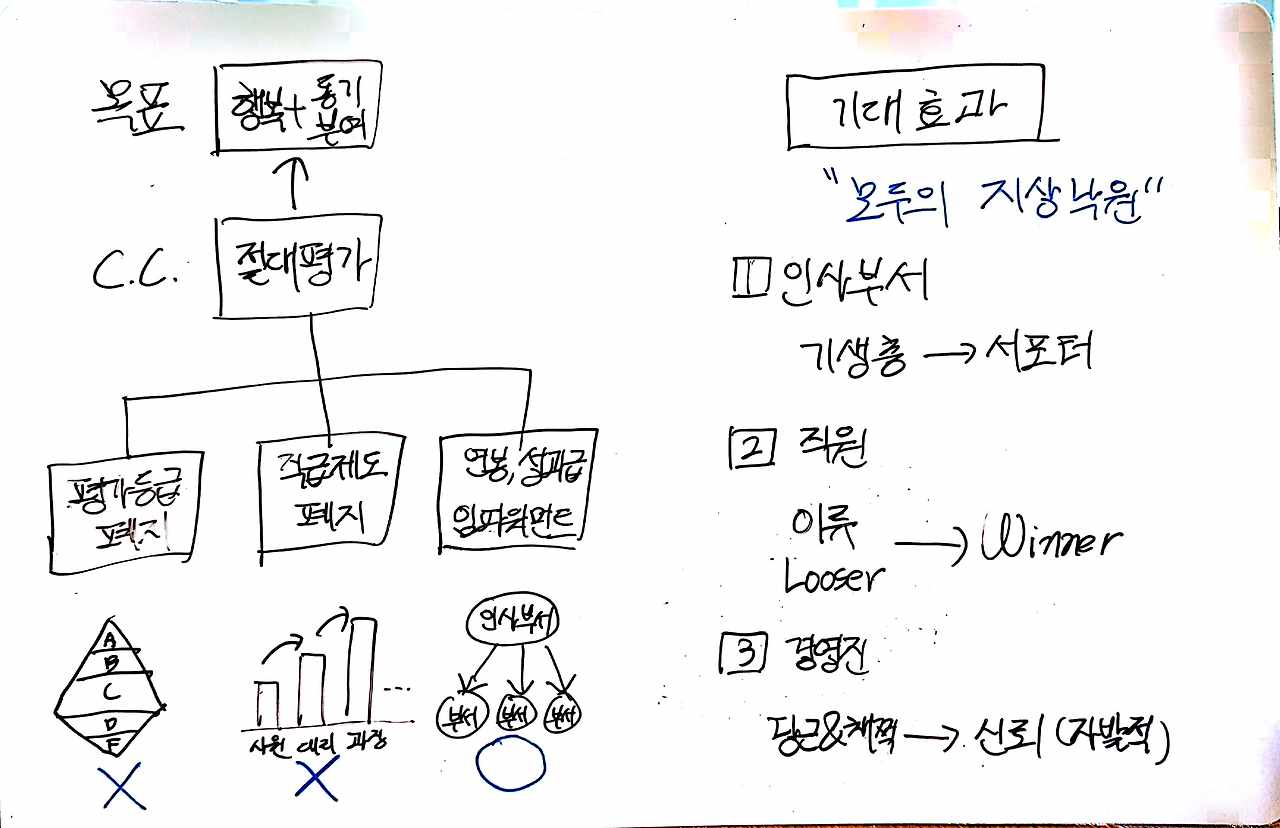 목표
행복+동기
부여
C.C.
절대평가
평가등급
폐지
직급제도
폐지
연봉, 성과급
임파워먼트
A
B
C
D
F
X
사원 대리 과장
...
X
인사부서
부서 부서 부서
기대효과
"모두의 지상낙원"
1 인사부서
기생충 → 서포터
2 직원
이류
Looser → Winner
3 경영진
당근&채찍 → 신뢰 (자발적)